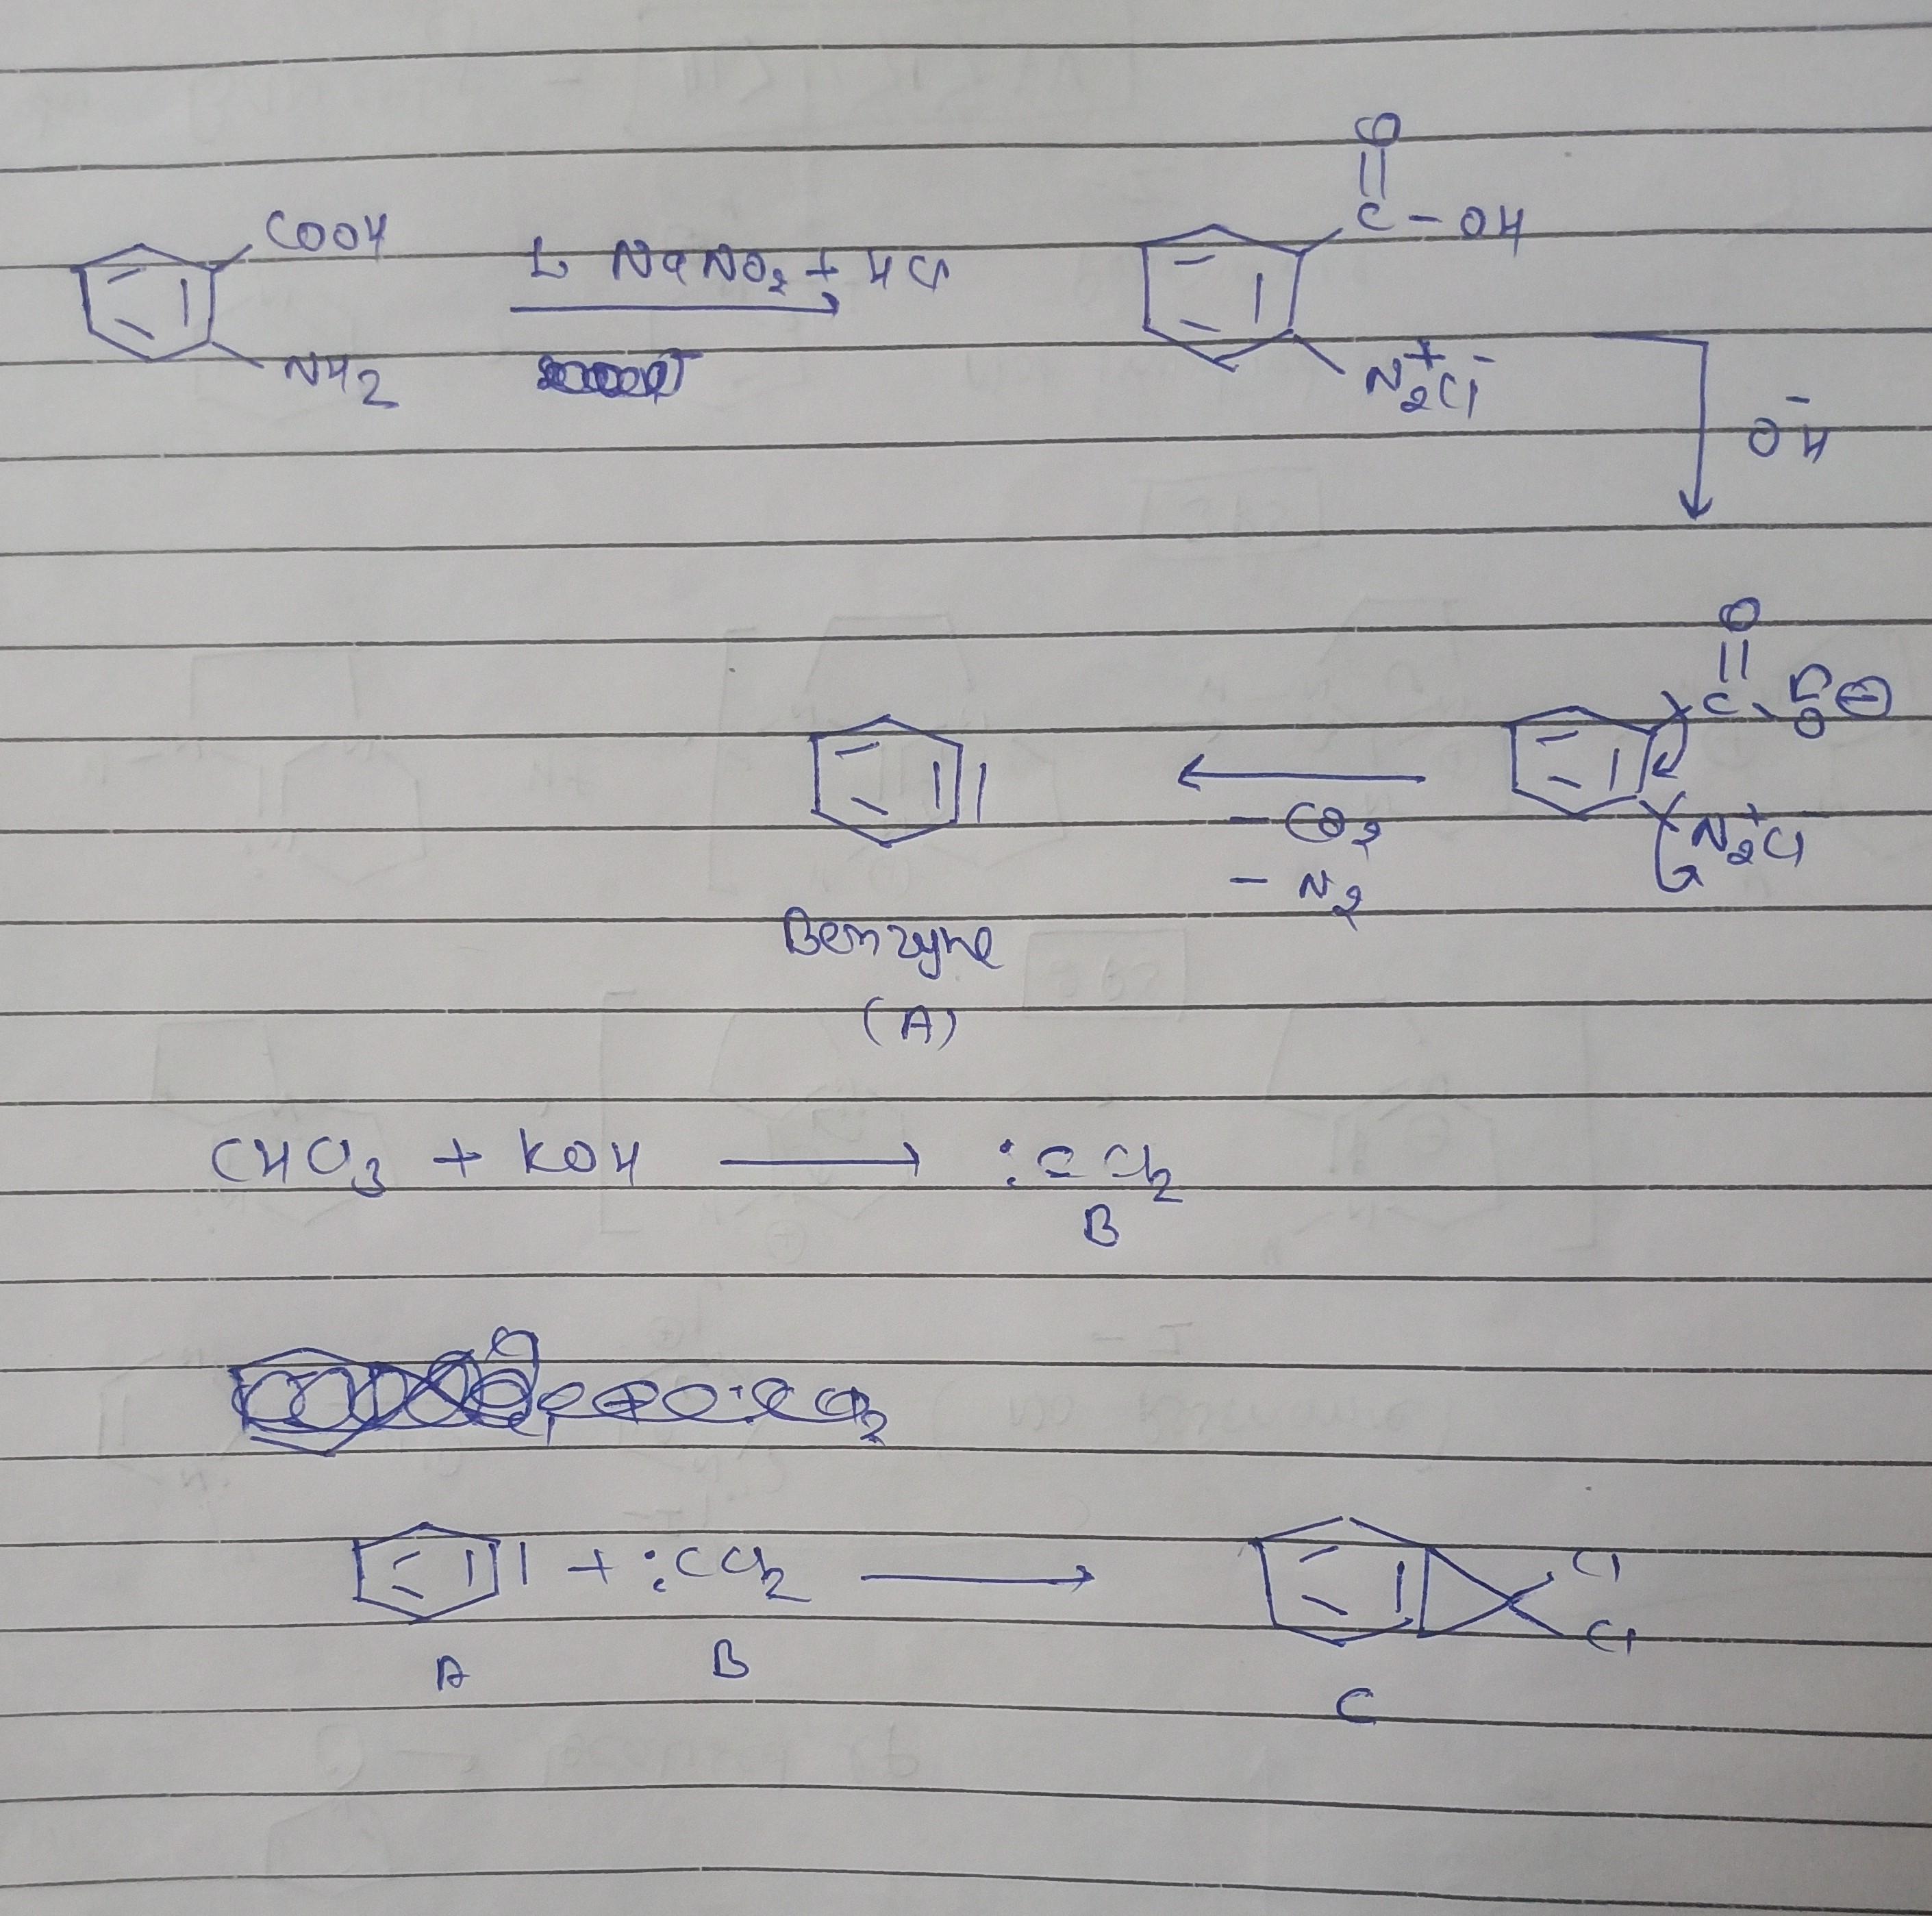 COOH
1. NaNO2 + HCl
NH2
O
C - OH
N2+Cl-
OH-
O
C O ⊖
N2+Cl
- CO2
- N2
Benzyne
(A)
CHCl3 + KOH → :CCl2
B
:CCl2
+ :CCl2 → Cl
Cl
A B
C